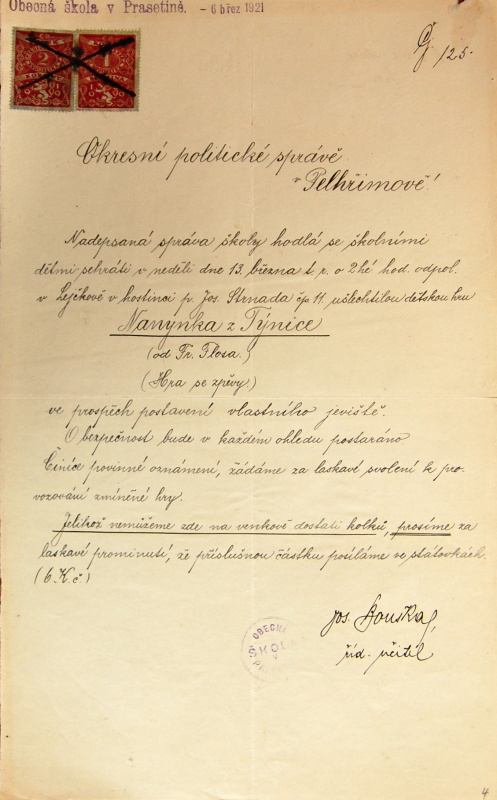 Obecná škola v Prasetíně. - 6 břez 1921
Čj 125.
2 1
Okresní politické správě
v Pelhřimově!
Nadepsaná správa školy hodlá se školními
dětmi sehráti v neděli dne 13. března t. r. o 2hé hod. odpol.
v Lejčkově v hostinci p. Jos. Strnada čp 11. ušlechtilou dětskou hru
Nanynka z Týnice
(od Fr. Flosa.)
(Hra se zpěvy.)
ve prospěch postavení vlastního jeviště.
O bezpečnost bude v každém ohledu postaráno
Činíce povinné oznámení, žádáme za laskavé svolení k pro-
vozování zmíněné hry.
Jelikož nemůžeme zde na venkově dostati kolků, prosíme za
laskavé prominutí, že příslušnou částku posíláme ve státovkách.
(6 Kč)
Jos. Bouška,
říd. učitel
OBECNÁ
ŠKOLA
V
4